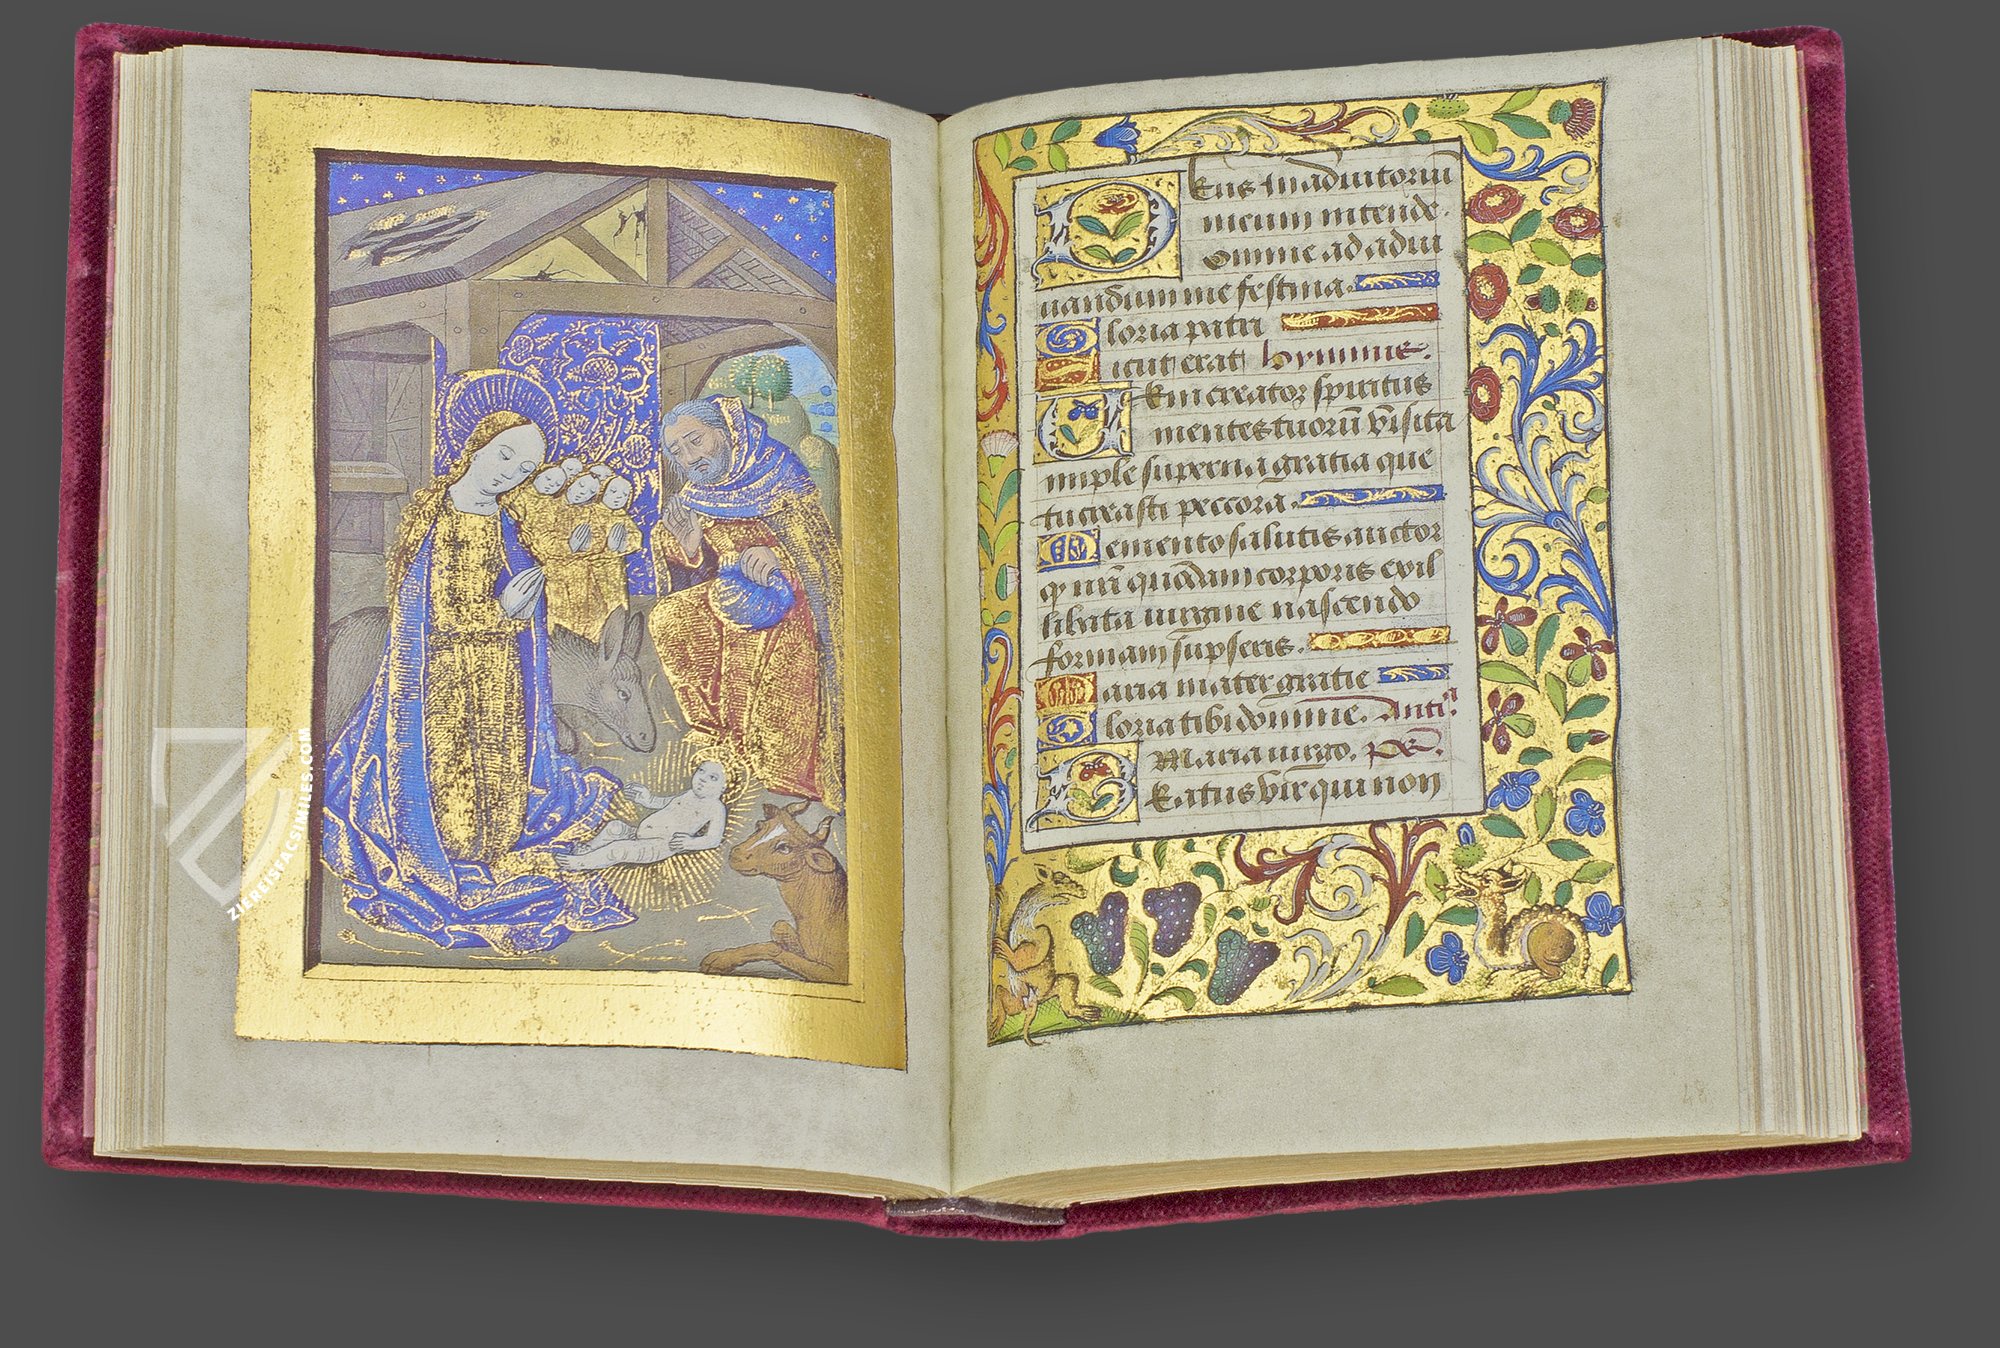 ZIEREISFACSIMILES.COM
Deus in adiutoriū
meum intende.
Domine ad adiu
uandum me festina.
Gloria patri
Sicut erat hymnus.
Veni creator spiritus
mentes tuorū visita
imple superna gratia que
tu creasti peccora.
Memento salutis auctor
qͥ nr̄i quōdam corporis ex il
libata uirgine nascendo
formam sūpseris.
Maria mater gratie
Gloria tibi domine. Anti.ª
Maria uirgo. ps.
Beatus vir qui non
48